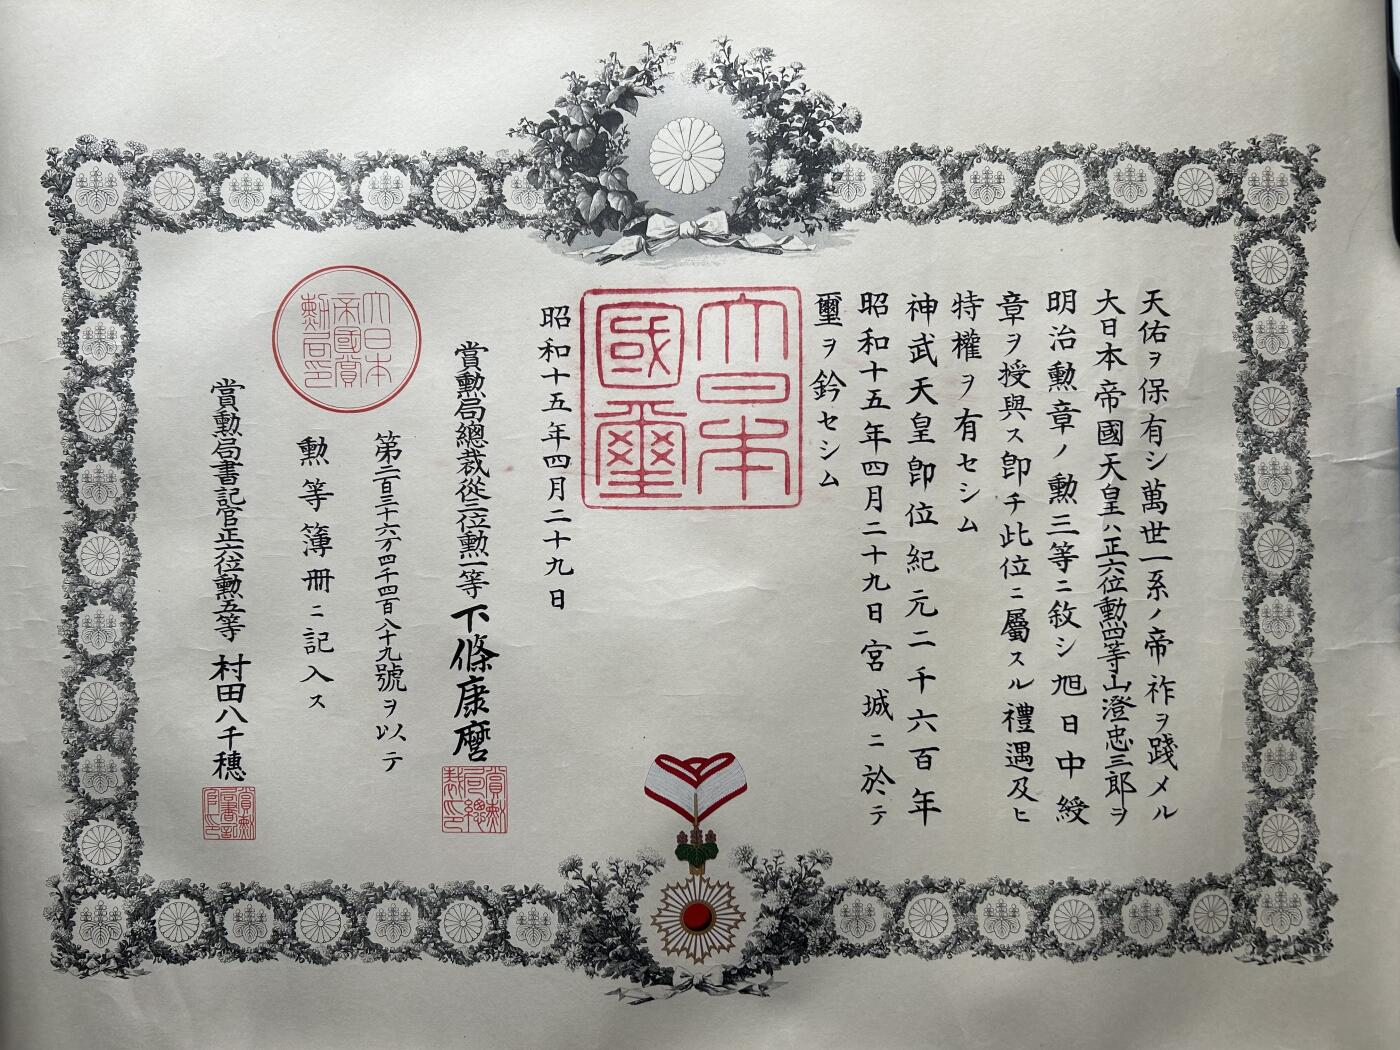 天佑ヲ保有シ萬世一系ノ帝祚ヲ踐メル
大日本帝國天皇ハ正六位勲四等山澄忠三郎ヲ
明治勲章ノ勲三等ニ敘シ旭日中綬
章ヲ授與ス卽チ此位ニ屬スル禮遇及ヒ
特權ヲ有セシム
神武天皇卽位紀元二千六百年
昭和十五年四月二十九日宮城ニ於テ
璽ヲ鈐セシム
大日本
國璽
昭和十五年四月二十九日
賞勲局總裁從三位勲一等 下條康麿
賞勲
局總
裁印
第二百三十六万四千四百八十九號ヲ以テ
勲等簿冊ニ記入ス
大日本
帝國賞
勲局印
賞勲局書記官正六位勲五等 村田八千穂
賞勲
局書記
官印